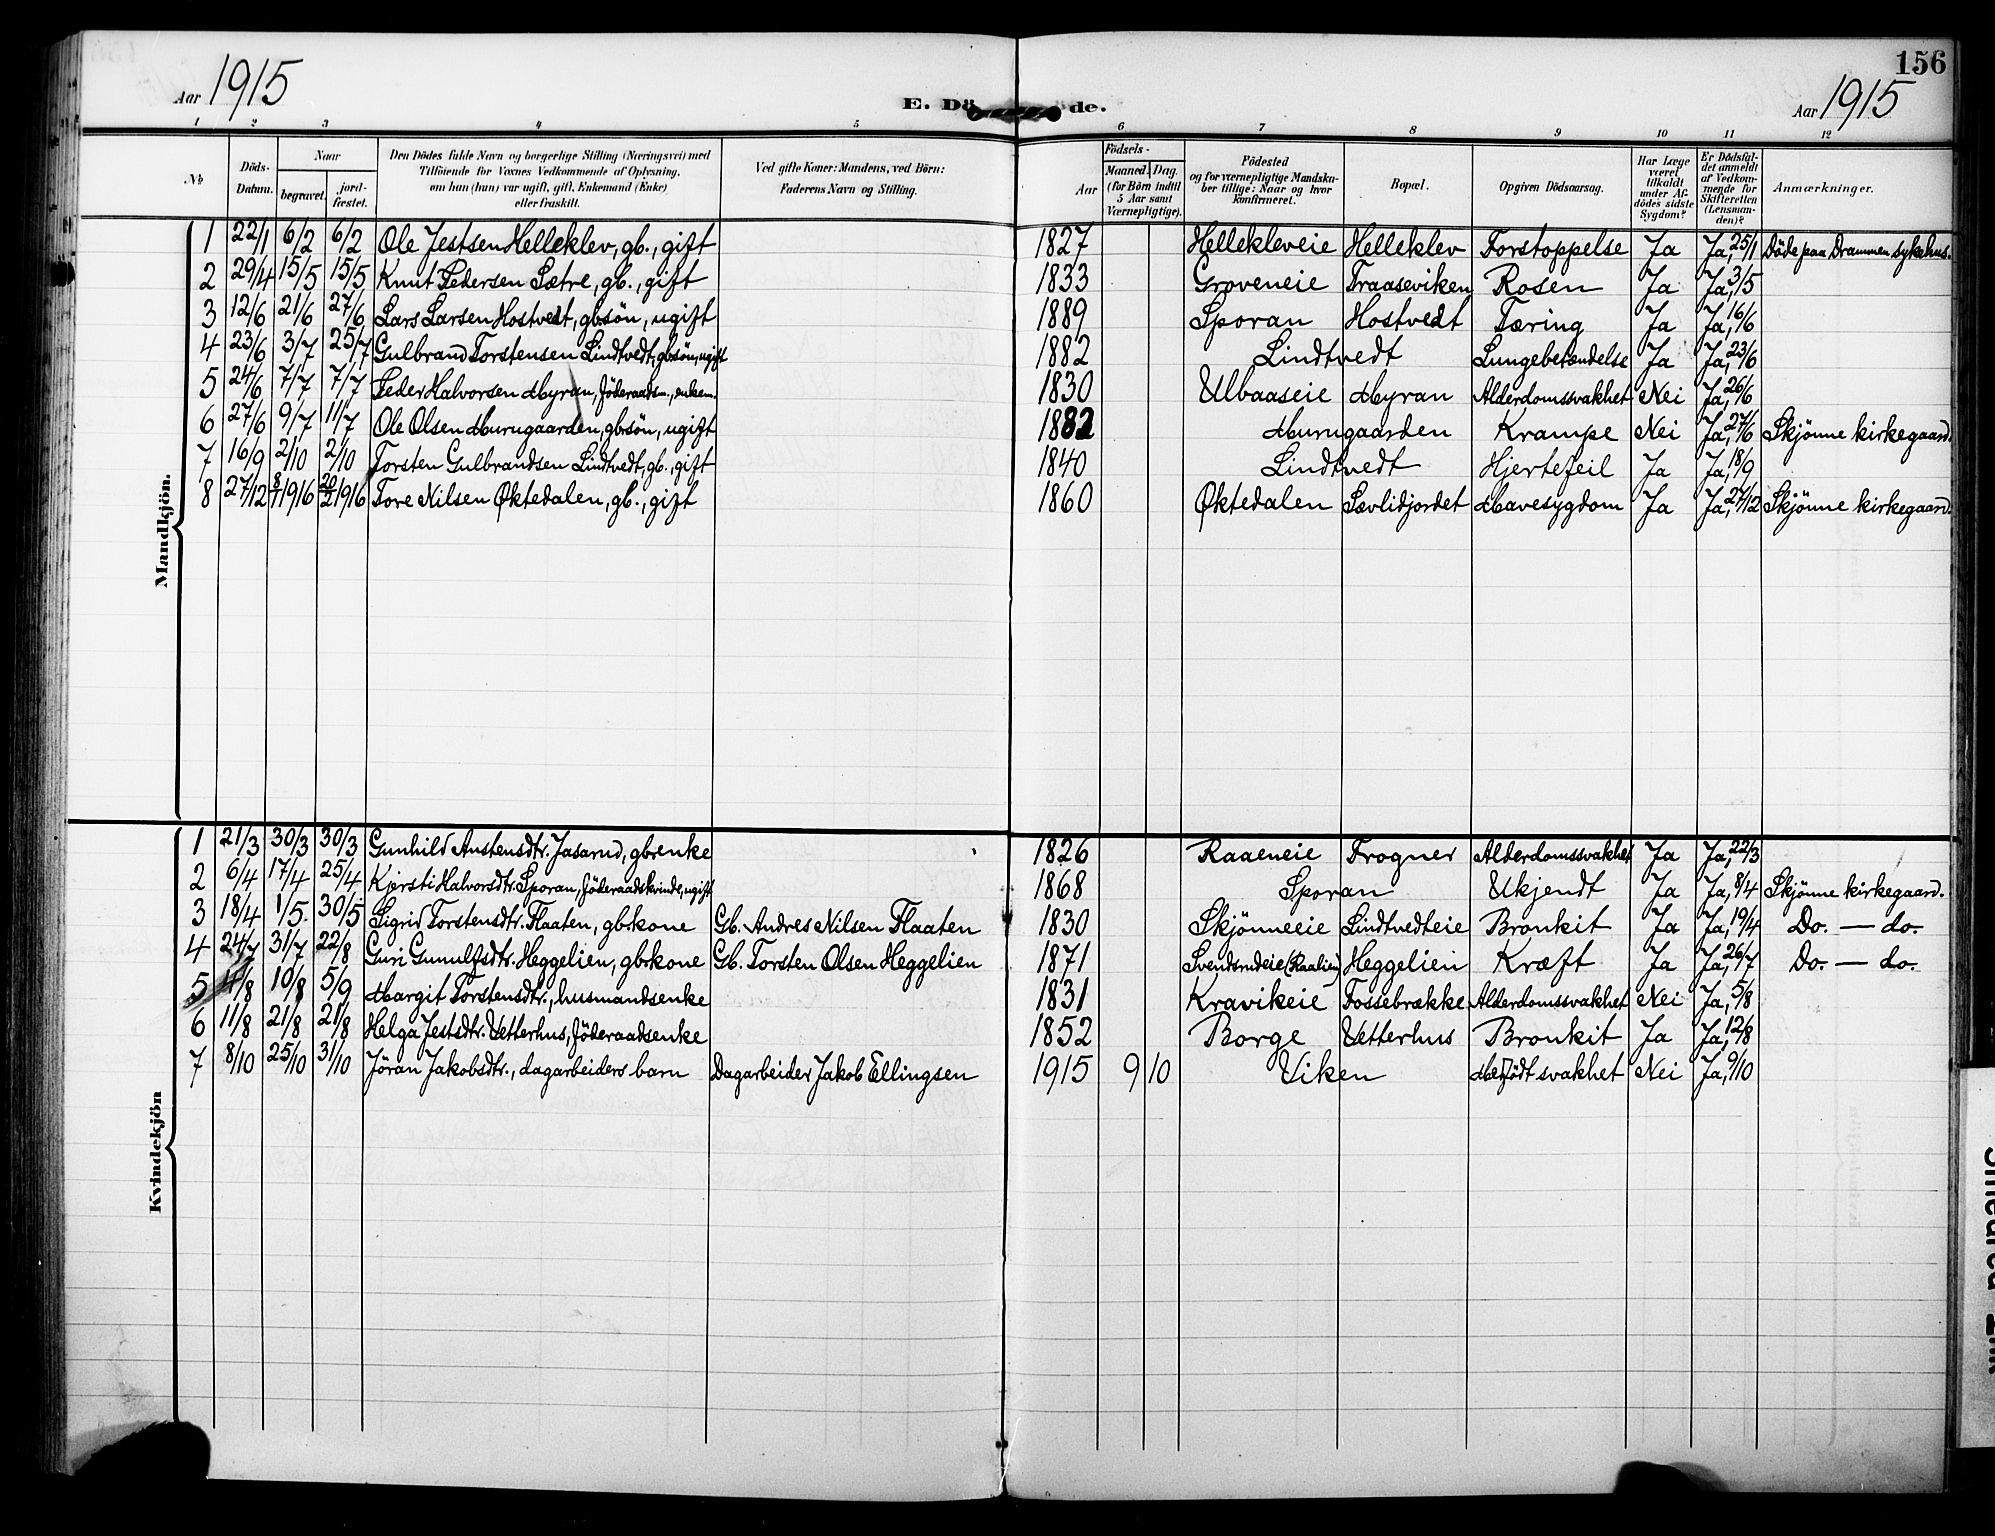 156
Aar 1915
E. Dö de.
Aar 1915
1 2 3 4 5 6 7 8 9 10 11 12
No
Döds-Datum.
Naar
begravet.
jord-fæstet.
Den Dödes fulde Navn og borgerlige Stilling (Næringsvei) med
Tilföiende for Voxnes Vedkommende af Oplysning,
om han (hun) var ugift, gift, Enkemand (Enke)
eller fraskilt.
Ved gifte Koner: Mandens, ved Börn:
Faderens Navn og Stilling.
Födsels-
Aar
Maaned. Dag.
(for Börn indtil
5 Aar samt
Værnepligtige).
Födested
og for værnepligtige Mandska-
ber tillige: Naar og hvor
konfirmeret.
Bopæl.
Opgiven Dödsaarsag.
Har Læge
været
tilkaldt
under Af-
dödes sidste
Sygdom?
Er Dödsfal-
det anmeldt
af Vedkom-
mende for
Skifteretten
(Lensman-
den)?
Anmærkninger.
Mandkjön.
1 22/1 6/2 6/2 Ole Jestsen Helleklev, gb., gift 1827 Hellekleveie Helleklev Forstoppelse Ja Ja, 25/1 Döde paa Drammen sykehus.
2 29/4 15/5 15/5 Knut Pedersen Sætre, gb., gift 1833 Groveneie Traaseviken Rosen Ja Ja, 3/5
3 12/6 21/6 27/6 Lars Larsen Hostvedt, gbsön, ugift 1889 Sporan Hostvedt Tæring Ja Ja, 16/6
4 23/6 3/7 25/7 Gulbrand Torstensen Lindtvedt, gbsön, ugift 1882 Lindtvedt Lungebetændelse Ja Ja, 23/6
5 24/6 7/7 7/7 Peder Halvorsen Myran, föderaadsm., enkem. 1830 Ulbaaseie Myran Alderdomssvakhet Nei Ja, 26/6
6 27/6 9/7 11/7 Ole Olsen Murugaarden, gbsön, ugift 1882 Murugaarden Krampe Nei Ja, 27/6 Skjönne kirkegaard.
7 16/9 2/10 2/10 Torsten Gulbrandsen Lindtvedt, gb., gift 1840 Lindtvedt Hjertefeil Ja Ja, 18/9
8 27/12 8/1 1916 20/2 1916 Tore Nilsen Øktedalen, gb., gift 1860 Øktedalen Sævlidjordet Mavesygdom Ja Ja, 27/12 Skjönne kirkegaard.
Kvindekjön
1 21/3 30/3 30/3 Gunhild Austensdtr. Jasarud, gbrenke 1826 Raaeneie Frogner Alderdomssvakhet Ja Ja, 22/3
2 6/4 17/4 25/4 Kjersti Halvorsdtr. Sporan, föderaadskvinde, ugift 1868 Sporan Ukjendt Ja Ja, 8/4 Skjönne kirkegaard.
3 18/4 1/5. 30/5 Sigrid Torstensdtr. Flaaten, gbrkone Gb. Andres Nilsen Flaaten 1830 Skjönneeie Lindtvedteie Bronkit Ja Ja, 19/4 Do. — do.
4 24/7 31/7 22/8 Guri Gunulfsdtr. Heggelien, gbrkone Gb. Torsten Olsen Heggelien 1871 Svendsrudeie (Raalien) Heggelien Kræft Ja Ja, 26/7 Do. — do.
5 4/8 10/8 5/9 Margit Torstensdtr., husmandsenke 1831 Kravikeie Fossebrække Alderdomssvakhet Nei Ja, 5/8
6 11/8 21/8 21/8 Helga Jestsdtr. Vetterhus, föderaadsenke 1852 Borge Vetterhus Bronkit Ja Ja, 12/8
7 8/10 25/10 31/10 Jöran Jakobsdtr., dagarbeiders barn Dagarbeider Jakob Ellingsen 1915 9 10 Viken Medfödt svakhet Nei Ja, 9/10